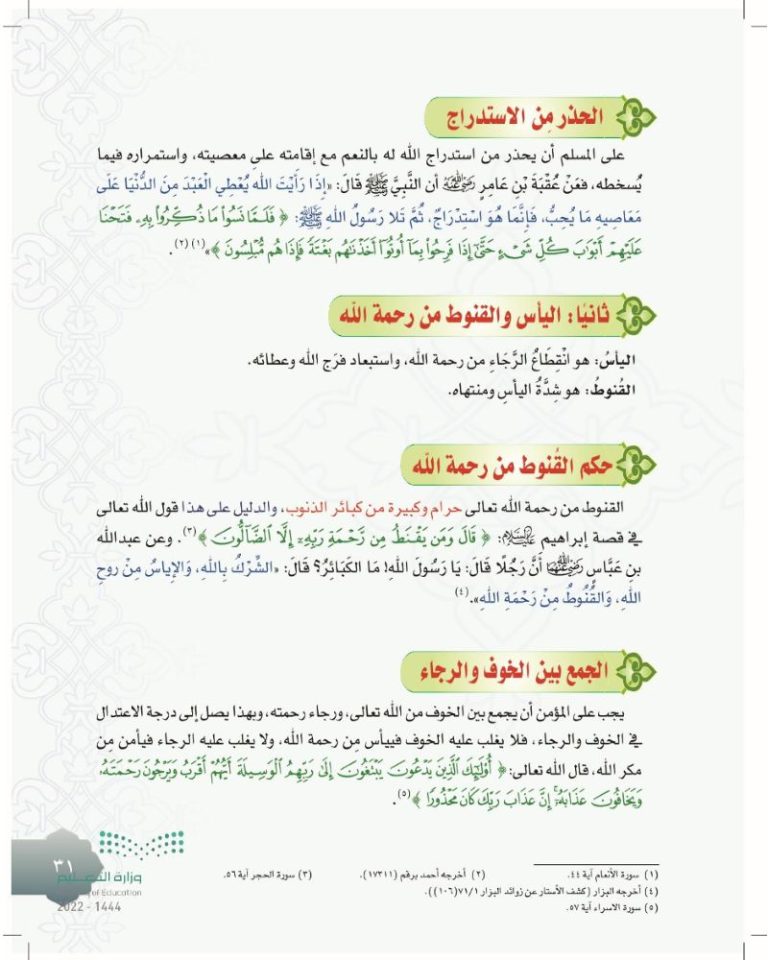 الحذر مِن الاستدراج
على المسلم أن يحذر من استدراج الله له بالنعم مع إقامته على معصيته، واستمراره فيما
يُسخطه، فعَنْ عُقْبَةَ بْنِ عامرٍ رضي الله عنه أن النَّبِيَّ ﷺ قَالَ: «إِذَا رَأَيْتَ الله يُعْطِي الْعَبْدَ مِنَ الدُّنْيَا عَلَى
مَعَاصِيهِ مَا يُحِبُّ، فَإِنَّمَا هُوَ اسْتِدْرَاجٌ، ثُمَّ تَلا رَسُولُ اللهِ ﷺ: ﴿ فَلَمَّا نَسُوا۟ مَا ذُكِّرُوا۟ بِهِۦ فَتَحْنَا
عَلَيْهِمْ أَبْوَٰبَ كُلِّ شَىْءٍ حَتَّىٰٓ إِذَا فَرِحُوا۟ بِمَآ أُوتُوٓا۟ أَخَذْنَٰهُم بَغْتَةً فَإِذَا هُم مُّبْلِسُونَ ﴾»(١)(٢).
ثانيًا: اليأس والقنوط من رحمة الله
اليأسُ: هو انْقِطَاعُ الرَّجَاءِ من رحمة الله، واستبعاد فرَج الله وعطائه.
القُنوطُ: هو شِدَّةُ اليأسِ ومنتهاه.
حكم القُنوط من رحمة الله
القنوط من رحمة الله تعالى حرام وكبيرة من كبائر الذنوب، والدليل على هذا قول الله تعالى
في قصة إبراهيم عليه السلام: ﴿ قَالَ وَمَن يَقْنَطُ مِن رَّحْمَةِ رَبِّهِۦٓ إِلَّا ٱلضَّآلُّونَ ﴾(٣). وعن عبدالله
بنِ عَبَّاسٍ رضي الله عنهما أَنَّ رَجُلًا قَالَ: يَا رَسُولَ اللهِ! مَا الكَبَائِرُ؟ قَالَ: «الشِّرْكُ بِاللهِ، وَالإِياسُ مِنْ روحِ
اللهِ، وَالقُنُوطُ مِنْ رَحْمَةِ اللهِ».(٤)
الجمع بين الخوف والرجاء
يجب على المؤمن أن يجمع بين الخوف من الله تعالى، ورجاء رحمته، وبهذا يصل إلى درجة الاعتدال
في الخوف والرجاء، فلا يغلب عليه الخوف فييأس مِن رحمة الله، ولا يغلب عليه الرجاء فيأمن مِن
مكر الله، قال الله تعالى: ﴿ أُو۟لَٰٓئِكَ ٱلَّذِينَ يَدْعُونَ يَبْتَغُونَ إِلَىٰ رَبِّهِمُ ٱلْوَسِيلَةَ أَيُّهُمْ أَقْرَبُ وَيَرْجُونَ رَحْمَتَهُۥ
وَيَخَافُونَ عَذَابَهُۥٓ إِنَّ عَذَابَ رَبِّكَ كَانَ مَحْذُورًا ﴾(٥).
(١) سورة الأنعام آية ٤٤. (٢) أخرجه أحمد برقم (١٧٣١١). (٣) سورة الحجر آية ٥٦.
(٤) أخرجه البزار (كشف الأستار عن زوائد البزار ٧١/١(١٠٦)).
(٥) سورة الاسراء آية ٥٧.
٣١
وزارة التعليم
of Education
2022 - 1444